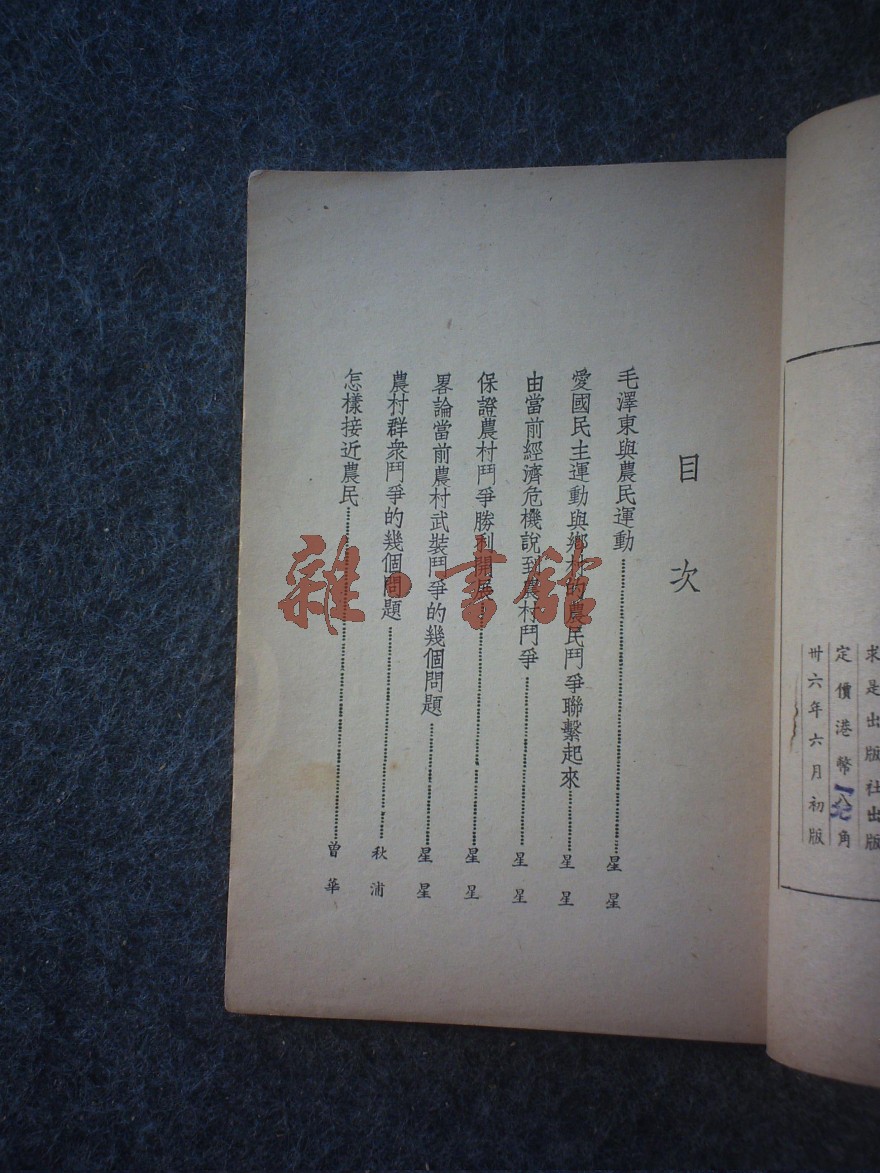 求是出版社出版
定價港幣
角
卅六年六月初版
目次
毛澤東與農民運動……星星
愛國民主運動與鄉村的農民鬥爭聯繫起來……星星
由當前經濟危機說到農村鬥爭……星星
保證農村鬥爭勝利開展……星星
畧論當前農村武裝鬥爭的幾個問題……星星
農村群衆鬥爭的幾個問題……秋浦
怎樣接近農民……曾華
雜·書館